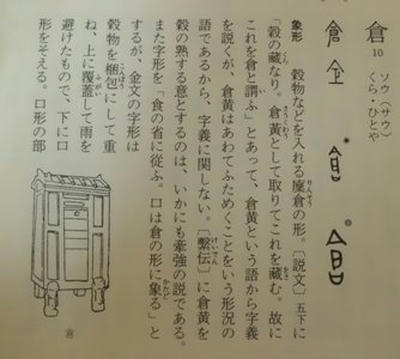 倉
10
ソウ(サウ)
くら・ひとや
象形 穀物などを入れる廩倉の形。〔説文〕五下に
りんそう
「穀の藏なり。倉黃として取りてこれを藏む。故に
くら さうくわう をさ
これを倉と謂ふ」とあって、倉黄という語から字義
い
を説くが、倉黄はあわてふためくことをいう形況の
語であるから、字義に関しない。〔繫伝〕に倉黄を
けいでん
穀の熟する意とするのは、いかにも牽強の説である。
また字形を「食の省に從ふ。口は倉の形に象る」と
かたど
するが、金文の字形は
穀物を梱包にして重
こんぽう
ね、上に覆蓋して雨を
ふがい
避けたもので、下に口
形をそえる。口形の部
倉